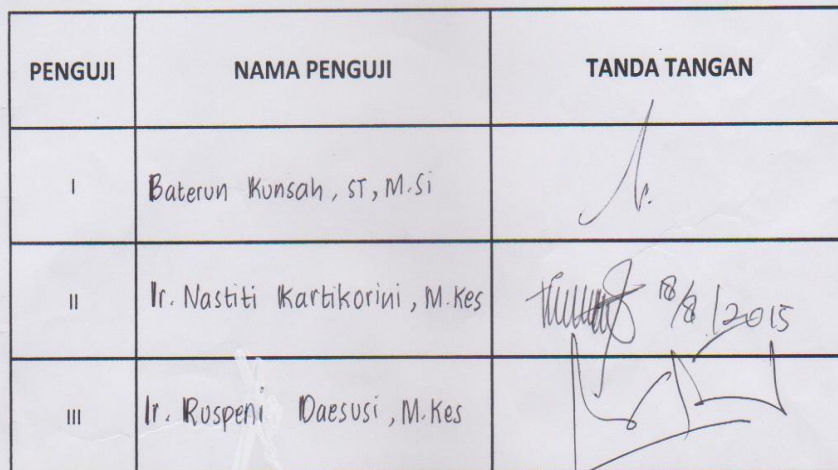 PENGUJI NAMA PENGUJI TANDA TANGAN
I Baterun Kunsah, ST, M.Si
II Ir. Nastiti Kartikorini, M.Kes 18/8/2015
III Ir. Ruspeni Daesusi, M.Kes